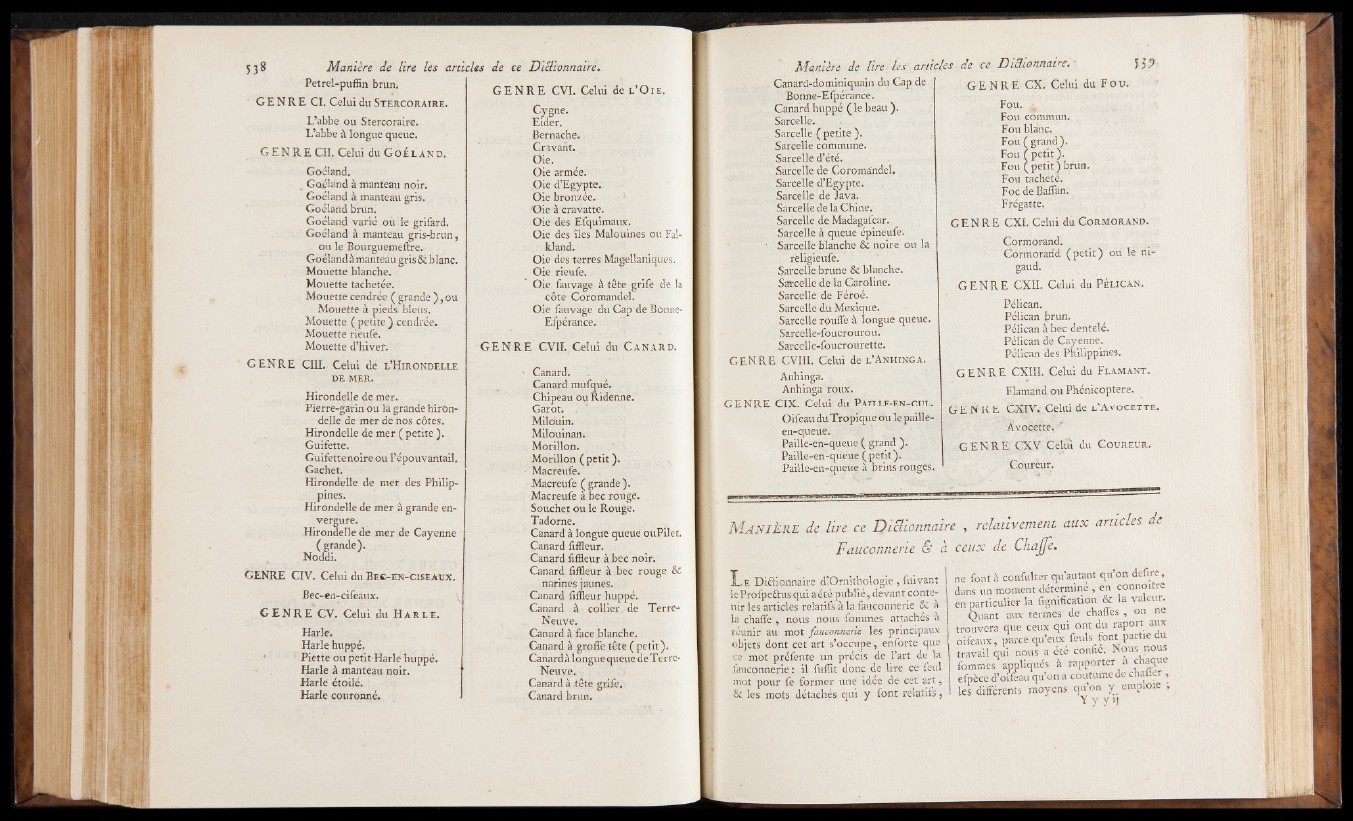 538 Manière de lire les articles de ce Dictionnaire.
Petrel-puffin brun.
GENRE CI. Celui du STERCORAIRE.
L'abbe ou Stercoraire.
L'abbe à longue queue.
GENRE CII. Celui du GOÉLAND.
Goéland.
Goéland à manteau noir.
Goéland à manteau gris.
Goéland brun.
Goéland varié ou le grisard.
Goéland à manteau gris-brun,
ou le Bourguemestre.
Goéland à manteau gris & blanc.
Mouette blanche.
Mouette tachetée.
Mouette cendrée (grande), ou
Mouette à pieds bleus.
Mouette (petite) cendrée.
Mouette rieuse.
Mouette d'hiver.
GENRE CIII. Celui de L'HIRONDELLE
DE MER.
Hirondelle de mer.
Pierre-garin ou la grande hiron-
delle de mer de nos côtes.
Hirondelle de mer (petite).
Guifette.
Guifette noire ou l'épouvantail.
Gachet.
Hirondelle de mer des Philip-
pines.
Hirondelle de mer à grande en-
vergure.
Hirondelle de mer de Cayenne
(grande).
Noddi.
GENRE CIV. Celui du BEC-EN-CISEAUX.
Bec-en-ciseaux.
GENRE CV. Celui du HARLE.
Harle.
Harle huppé.
Piette ou petit Harle huppé.
Harle à manteau noir.
Harle étoilé.
Harle couronné.
GENRE CVI. Celui de L'OIE.
Cygne.
Eider.
Bernache.
Cravant.
Oie.
Oie armée.
Oie d'Egypte.
Oie bronzée.
Oie à cravatte.
Oie des Esquimaux.
Oie des îles Malouines ou Fal-
kland.
Oie des terres Magellaniques.
Oie rieuse.
Oie sauvage à tête grise de la
côte Coromandel.
Oie sauvage du Cap de Bonne-
Espérance.
GENRE CVII. Celui du CANARD.
Canard.
Canard musqué.
Chipeau ou Ridenne.
Garot.
Milouin.
Milouinan.
Morillon.
Morillon (petit).
Macreuse.
Macreuse (grande).
Macreuse à bec rouge.
Souchet ou le Rouge.
Tadorne.
Canard à longue queue ou Pilet.
Canard siffleur.
Canard siffleur à bec noir.
Canard siffleur à bec rouge &
narines jaunes.
Canard siffleur huppé.
Canard à collier de Terre-
Neuve.
Canard à face blanche.
Canard à grosse tête (petit).
Canard à longue queue de Terre-
Neuve.
Canard à tête grise.
Canard brun.
Manière de lire les articles de ce Dictionnaire. 539
Canard-dominiquain du Cap de
Bonne-Espérance.
Canard huppé (le beau).
Sarcelle.
Sarcelle (petite).
Sarcelle commune.
Sarcelle d'été.
Sarcelle de Coromandel.
Sarcelle d'Egypte.
Sarcelle de Java.
Sarcelle de la Chine.
Sarcelle de Madagascar.
Sarcelle à queue épineuse.
Sarcelle blanche & noire ou la
religieuse.
Sarcelle brune & blanche.
Sarcelle de la Caroline.
Sarcelle de Féroé.
Sarcelle du Mexique.
Sarcelle rousse à longue queue.
Sarcelle-soucrourou.
Sarcelle-soucrourette.
GENRE CVIII. Celui de L'ANHINGA.
Anhinga.
Anhinga roux.
GENRE CIX. Celui du PAILLE-EN-CUL.
Oiseau du Tropique ou le paille-
en-queue.
Paille-en-queue (grand).
Paille-en-queue (petit).
Paille-en-queue à brins rouges.
GENRE CX. Celui du FOU.
Fou.
Fou commun.
Fou blanc.
Fou (grand).
Fou (petit).
Fou (petit) brun.
Fou tacheté.
Foc de Bassan.
Frégatte.
GENRE CXI. Celui du CORMORAND.
Cormorand.
Cormorand (petit) ou le ni-
gaud.
GENRE CXII. Celui du PÉLICAN.
Pélican.
Pélican brun.
Pélican à bec dentelé.
Pélican de Cayenne.
Pélican des Philippines.
GENRE CXIII. Celui du FLAMANT.
Flamand ou Phénicoptere.
GENRE CXIV. Celui de L'AVOCETTE.
Avocette.
GENRE CXV Celui du COUREUR.
Coureur.
MANIÈRE de lire ce Dictionnaire, relativement aux articles de
Fauconnerie & à ceux de Chasse.
LE Dictionnaire d'Ornithologie, suivant
le Prospectus qui a été publié, devant conte-
nir les articles relatifs à la fauconnerie & à
la chasse, nous nous sommes attachés à
réunir au mot fauconnerie les principaux
objets dont cet art s'occupe, ensorte que
ce mot présente un précis de l'art de la
fauconnerie: il suffit donc de lire ce seul
mot pour se former une idée de cet art,
& les mots détachés qui y sont relatifs,
ne sont à consulter qu'autant qu'on desire,
dans un moment déterminé, en connoître
en particulier la signification & la valeur.
Quant aux termes de chasses, on ne
trouvera que ceux qui ont du raport aux
oiseaux, parce qu'eux seuls font partie du
travail qui nous a été confié. Nous nous
sommes appliqués à rapporter à chaque
espèce d'oiseau qu'on a coutume de chasser,
les différents moyens qu'on y emploie;
Yyyij